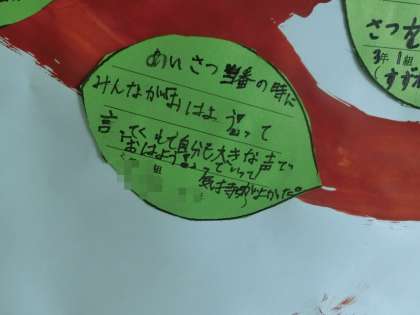 あいさつ当番の時に
みんなが「おはよう」って
言ってくれて自分も大きな声で
おはよう!っていって
組 気持ちがよかった。
さつ
3年1組
(すず